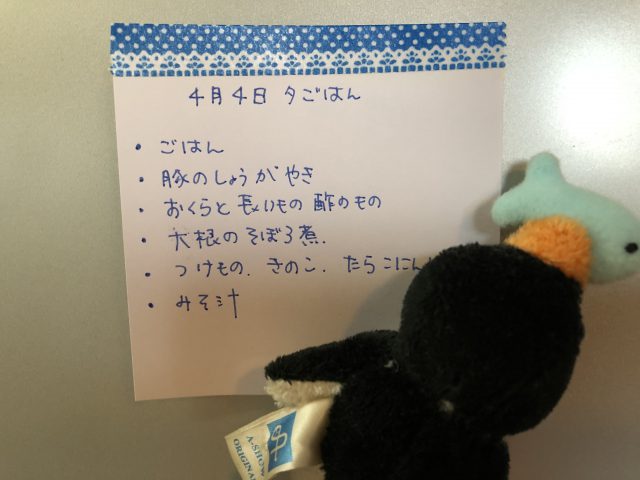 4月4日 夕ごはん
・ ごはん
・ 豚のしょうがやき
・ おくらと長いもの酢のもの
・ 大根のそぼろ煮.
・ つけもの. きのこ. たらこにん
・ みそ汁
A-SHOW
ORIGINA